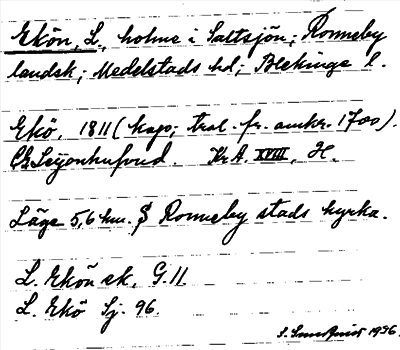 Ekön, L., holme i Saltsjön; Ronneby
landsk; Medelstads hd; Blekinge l.
Ekö, 1811 (kop; tral. fr. omkr. 1700).
Leijonhufvud. Kr.A. XVIII, H.
Läge 5,6 km. S Ronneby stads kyrka.
L. Ekön ek, G.11.
L. Ekö Sj. 96.
1956.